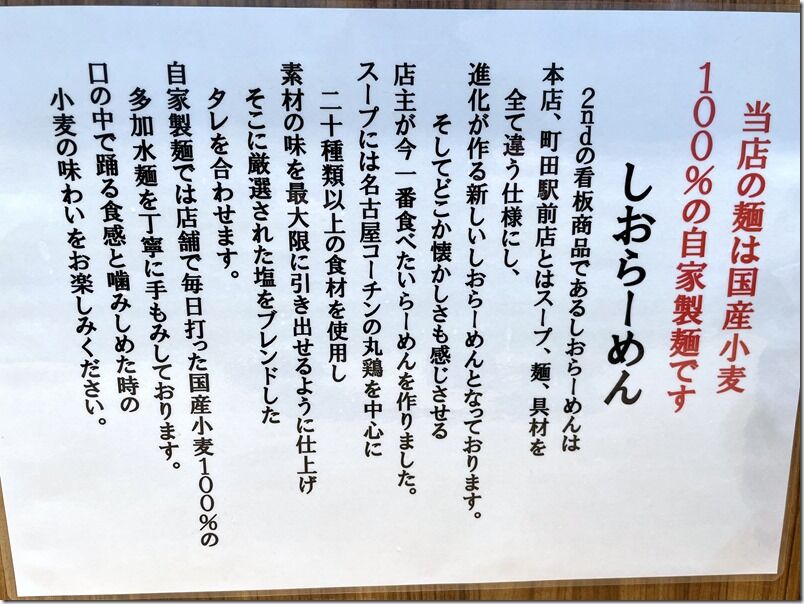 当店の麺は国産小麦
100%の自家製麺です
しおらーめん
2ndの看板商品であるしおらーめんは
本店、町田駅前店とはスープ、麺、具材を
全て違う仕様にし、
進化が作る新しいしおらーめんとなっております。
そしてどこか懐かしさも感じさせる
店主が今一番食べたいらーめんを作りました。
スープには名古屋コーチンの丸鶏を中心に
二十種類以上の食材を使用し
素材の味を最大限に引き出せるように仕上げ
そこに厳選された塩をブレンドした
タレを合わせます。
自家製麺では店舗で毎日打った国産小麦100%の
多加水麺を丁寧に手もみしております。
口の中で踊る食感と噛みしめた時の
小麦の味わいをお楽しみください。